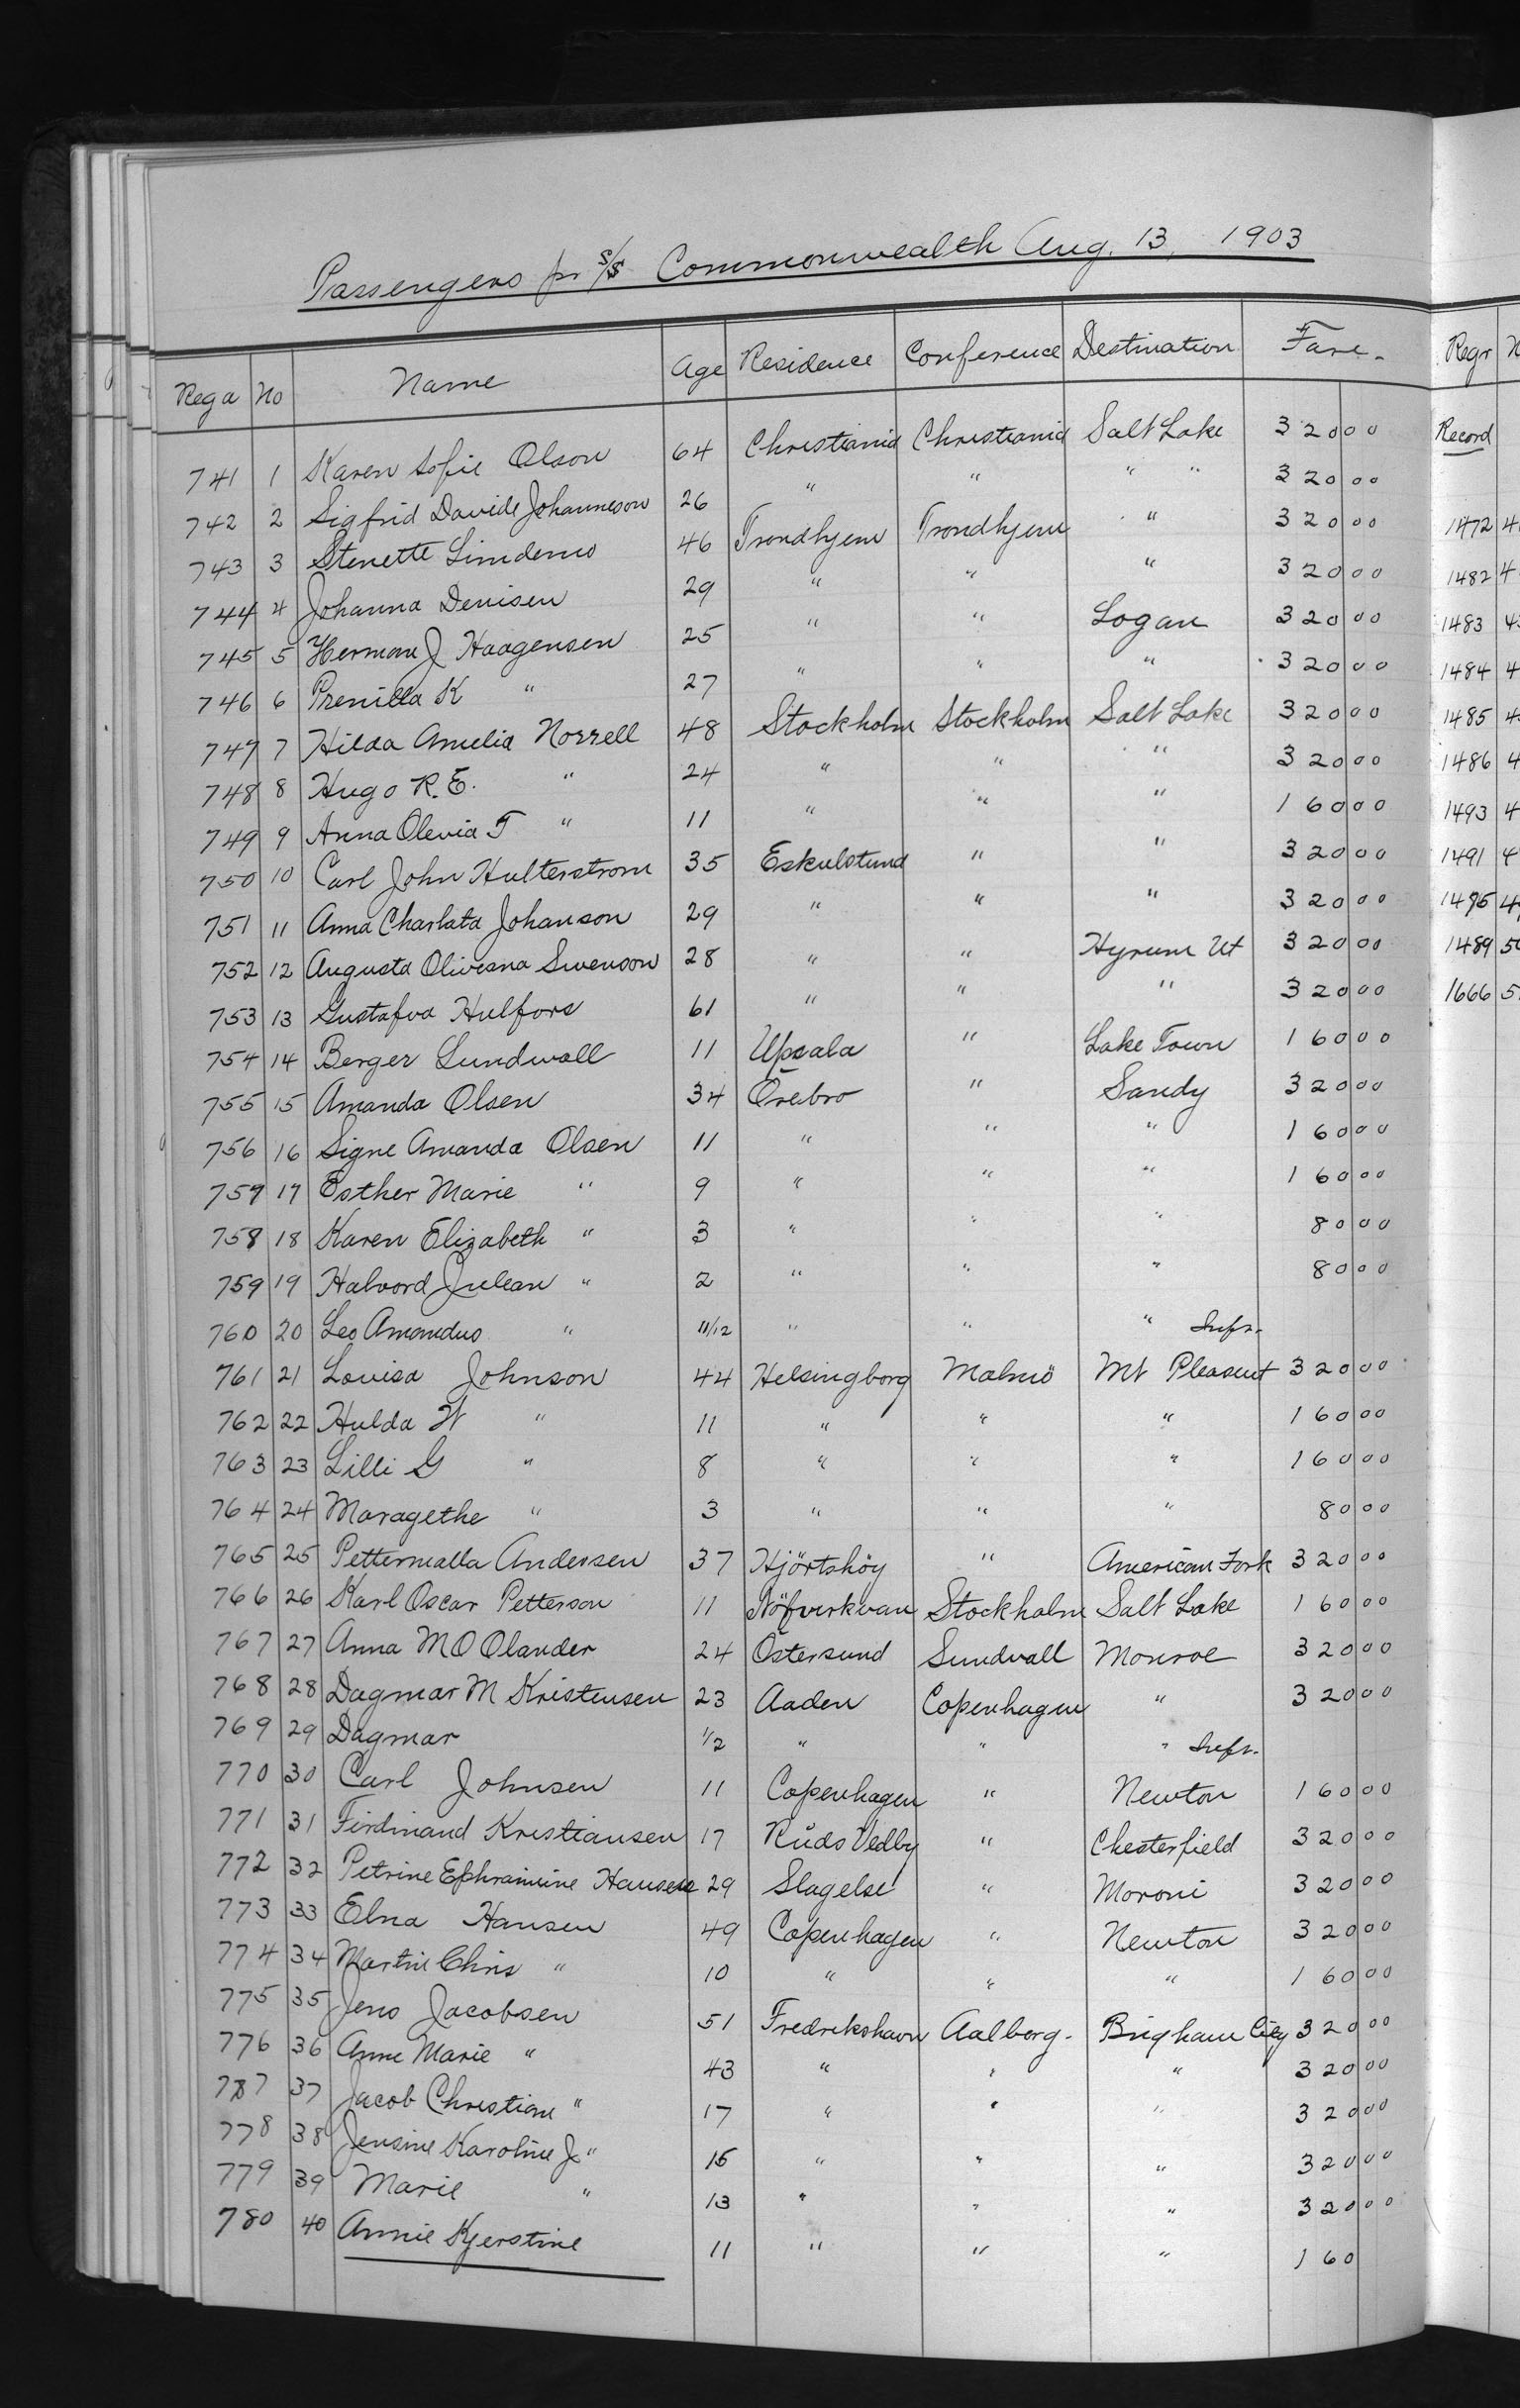 Passengers pr S/S Commonwealth Aug. 13, 1903
Rega No Name Age Residence Conference Destination Fare. Regr
741 1 Karen Sofie Olson 64 Christiania Christiania Salt Lake 320 00 Record
742 2 Sigfrid Davide Johanneson 26 " " " " 320 00
743 3 Stenette Limdemo 46 Trondhjem Trondhjem " 320 00 1472 4
744 4 Johanna Denisen 29 " " " 320 00 1482 4
745 5 Herman J Haagensen 25 " " Logan 320 00 1483 4
746 6 Prenilla K " 27 " " " 320 00 1484 4
747 7 Hilda Amelia Norrell 48 Stockholm Stockholm Salt Lake 320 00 1485 4
748 8 Hugo R.E. " 24 " " " 320 00 1486 4
749 9 Anna Olevia T " 11 " " " 160 00 1493 4
750 10 Carl John Hulterstrom 35 Eskulstund " " 320 00 1491 4
751 11 Anna Charlata Johanson 29 " " " 320 00 1495 4
752 12 Augusta Olivesna Swenson 28 " " Hyrum Ut 320 00 1489 50
753 13 Gustafva Hulfors 61 " " " 320 00 1666 5
754 14 Berger Lundwall 11 Upsala " Lake Town 160 00
755 15 Amanda Olsen 34 Örebro " Sandy 320 00
756 16 Signe Amanda Olsen 11 " " " 160 00
757 17 Esther Marie " 9 " " " 160 00
758 18 Karen Elizabeth " 3 " " " 80 00
759 19 Halvord Julean " 2 " " " 80 00
760 20 Leo Amandus " 11/12 " " " Infr.
761 21 Lovisa Johnson 44 Helsingborg Malmö Mt Pleasent 320 00
762 22 Hulda W " 11 " " " 160 00
763 23 Lilli G " 8 " " " 160 00
764 24 Maragethe " 3 " " " 80 00
765 25 Pettermalla Andersen 37 Hjörtshöy " American Fork 320 00
766 26 Karl Oscar Petterson 11 Nöfverkvan Stockholm Salt Lake 160 00
767 27 Anna M O Olander 24 Östersund Sundvall Monroe 320 00
768 28 Dagmar M Kristensen 23 Aaden Copenhagen " 320 00
769 29 Dagmar 1/2 " " " Infr.
770 30 Carl Johnsen 11 Copenhagen " Newton 160 00
771 31 Firdinand Kristiansen 17 Ruds Vedby " Chesterfield 320 00
772 32 Petrine Ephraimine Hansen 29 Slagelse " Moroni 320 00
773 33 Elna Hansen 49 Copenhagen " Newton 320 00
774 34 Martin Chris " 10 " " " 160 00
775 35 Jens Jacobsen 51 Fredrekshavn Aalborg. Brigham City 320 00
776 36 Anne Marie " 43 " " " 320 00
787 37 Jacob Christian " 17 " " " 320 00
778 38 Jensine Karoline J. " 15 " " " 320 00
779 39 Marie " 13 " " " 320 00
780 40 Annie Kjerstine 11 " " " 160